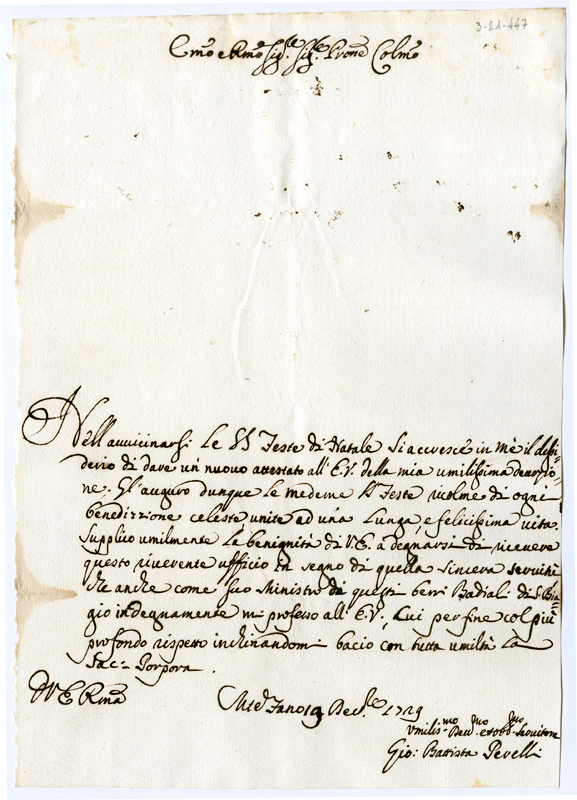 3-21-447
Emo e Rmo Sig.r Sig.r Prone Colmo
Nell'avvicinarsi le SS Feste di Natale si accresce in me il desi=
derio di dare un nuovo attestato all'E.V. della mia umilissima devozio=
ne; Gl'auguro dunque le medeme Ste Feste ricolme di ogni
benedizzione celeste unite ad una lunga, e felicissima vita.
Supplico umilmente la benignità di V.E. a degnarsi di ricevere
questo riverente uffizio in segno di quella sincera servitù
che anche come suo Ministro di questi beni Badiali di S. Bia=
gio indegnamente mi professo all'E.V., cui per fine col più
profondo rispetto inchinandomi bacio con tutta umiltà la
Sac: Porpora.
D V E Rma
Fano 19 Dec.re 1729
Umilis.mo Dev.mo et obb.mo Servitore
Gio: Battista Perelli